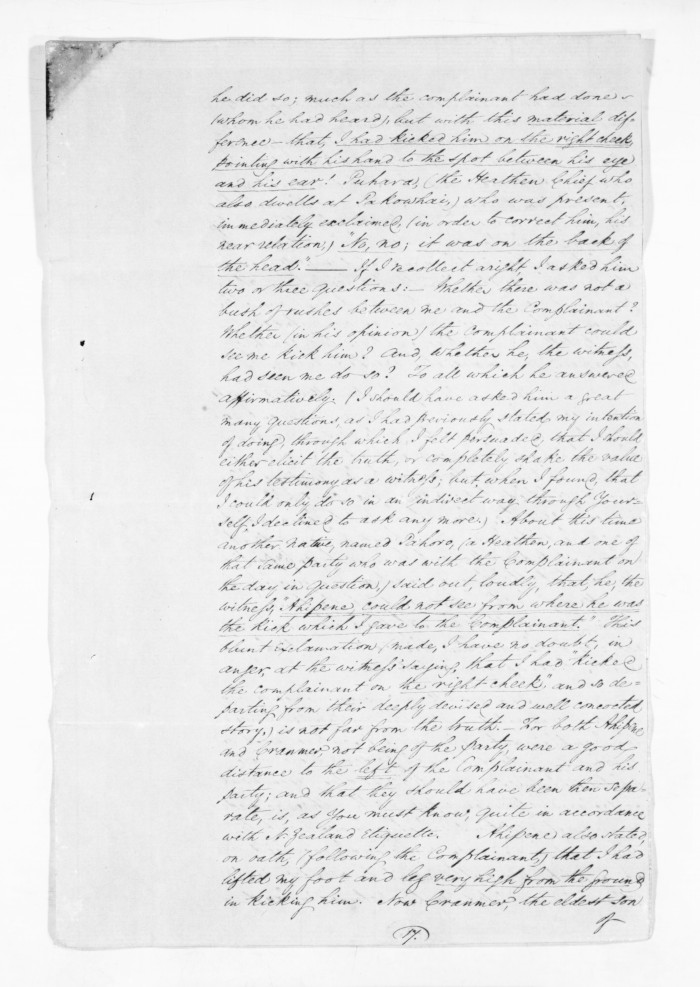 he did so; much as the complainant had done –
(whom he had heard), but with this material dif-
ference – that, I had kicked him on the right cheek,
pointing with his hand to the spot between his eye
and his ear! Puhara, (the Heathen Chief who
also dwells at Pakowhai,) who was present,
immediately exclaimed, (in order to correct him, his
near relation,) "No, no; it was on the back of
the head." —— If I recollect aright I asked him
two or three questions:– Whether there was not a
bush of rushes between me and the Complainant?
Whether (in his opinion) the Complainant could
see me kick him? And, whether he, the witness,
had seen me do so? To all which he answered
affirmatively. (I should have asked him a great
many questions, as I had previously stated my intention
of doing, through which I felt persuaded that I should
either elicit the truth, or completely shake the value
of his testimony as a witness; but when I found, that
I could only do so in an indirect way through Your-
self, I declined to ask any more.) About this time
another native, named Pahoro, (a Heathen, and one of
that same party who was with the Complainant on
the day in question,) said out, loudly, that, he, the
witness, "Ahipene, could not see from where he was
the kick which I gave to the Complainant." This
blunt exclamation, made, I have no doubt, in
anger at the witness' saying that I had "kicked
the complainant on the right cheek", and so de-
parting from their deeply devised and well concocted
story,) is not far from the truth. – For both Ahipene
and Cranmer, not being of the party, were a good
distance to the left of the Complainant and his
party; and that they should have been then sepa-
rate, is, as You must know, quite in accordance
with N. Zealand Etiquette. Ahipene also stated,
on oath, (following the Complainant,) that I had
lifted my foot and leg very high from the ground
in kicking him. Now Cranmer, the eldest son
of
17.